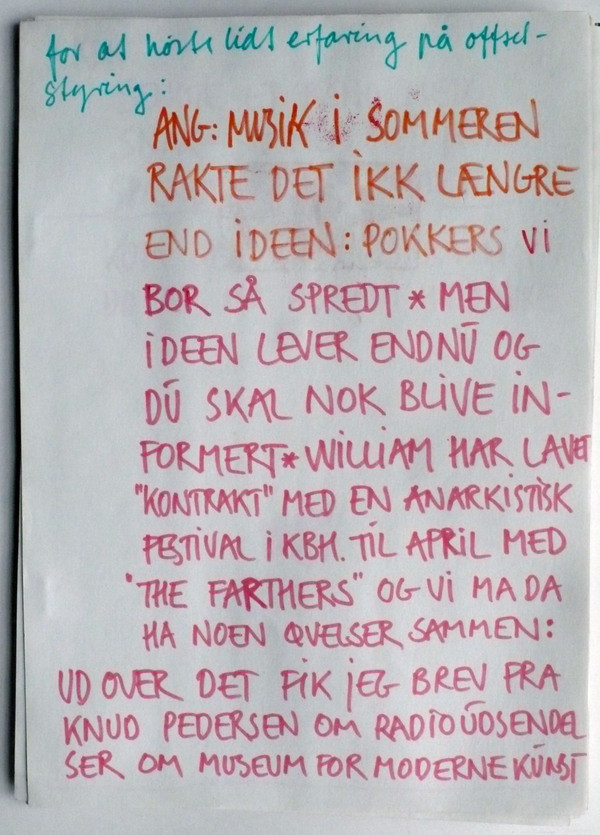 for at höste lidt erfaring på offset-
styring:
ANG: MUSIK I SOMMEREN
RAKTE DET IKK LÆNGRE
END IDEEN: POKKERS VI
BOR SÅ SPREDT * MEN
IDEEN LEVER ENDNŪ OG
DŪ SKAL NOK BLIVE IN-
FORMERT * WILLIAM HAR LAVET
"KONTRAKT" MED EN ANARKISTISK
FESTIVAL I KBH. TIL APRIL MED
"THE FARTHERS" OG VI MA DA
HA NOEN ØVELSER SAMMEN:
UD OVER DET FIK JEG BREV FRA
KNUD PEDERSEN OM RADIOŪDSENDEL
SER OM MUSEUM FOR MODERNE KŪNST